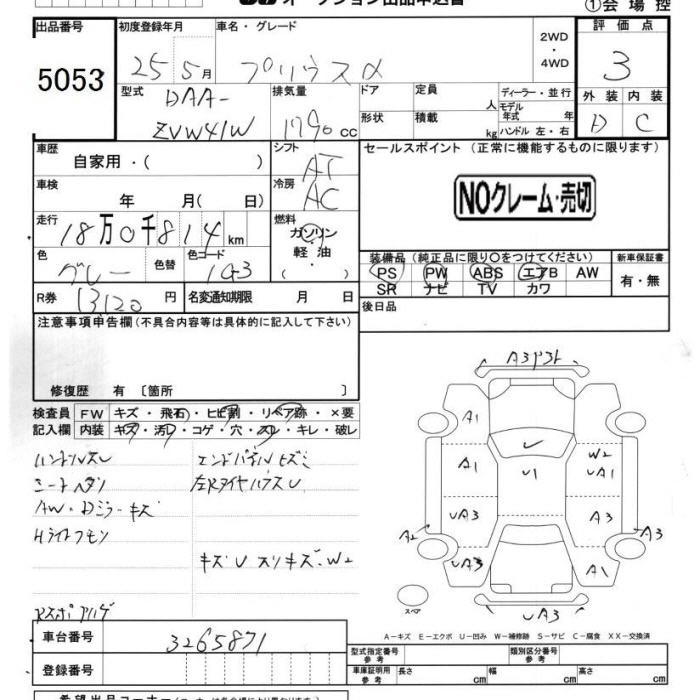 オークション出品申込書
①会場控
出品番号 初度登録年月 車名・グレード 2WD・4WD 評価点
5053 25 5月 プリウスα 3
型式 DAA-ZVW41W 排気量 1790 cc ドア 定員 人 ディーラー・並行 外装 内装
形状 積載 kg モデル年式 年 ハンドル 左・右 D C
車歴 自家用・( ) シフト AT セールスポイント (正常に機能するものに限ります)
車検 年 月( 日) 冷房 AC NOクレーム・売切
走行 18万0千814km 燃料 ガソリン
軽油
( ・ )
色 グレー 色替 色コード 1G3 装備品 (純正品に限り○をつけてください) 新車保証書
PS PW ABS エアB AW 有・無
SR ナビ TV カワ
R券 13120 円 名変通知期限 月 日 後日品
注意事項申告欄 (不具合内容等は具体的に記入して下さい)
修復歴 有 [箇所 ]
検査員 FW キズ・飛石・ヒビ割・リペア跡・×要
記入欄 内装 キズ・汚レ・コゲ・穴・スレ・キレ・破レ
ハンドルスレ エンドパネルヒズミ
シートヘタリ
AW・Dミラーキズ
Hライトクモリ
キズUスリキズ・W2
A3
A1
A1 W2
U1 UA1
UA3 A3
A2 A3
UA3 A1
UA3
スペア
A−キズ E−エクボ U−凹み W−補修跡 S−サビ C−腐食 XX−交換済
車台番号 3265871 型式指定番号 参考 類別区分番号 参考
登録番号 車庫証明用 参考 長さ cm 幅 cm 高さ cm